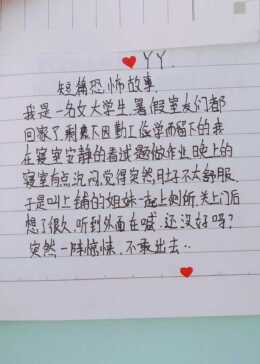 YY.
短篇恐怖故事.
我是一名女大学生.暑假室友们都
回家了剩剩下因勤工俭学而留下的我
在寝室安静的看试题做作业.晚上的
寝室有点沉闷.觉得突然肚子不太舒服.
于是叫上铺的姐妹一起上厕所.关上门后
想了很久.听到外面在喊.还没好吗?
突然一阵惊悚.不敢出去..